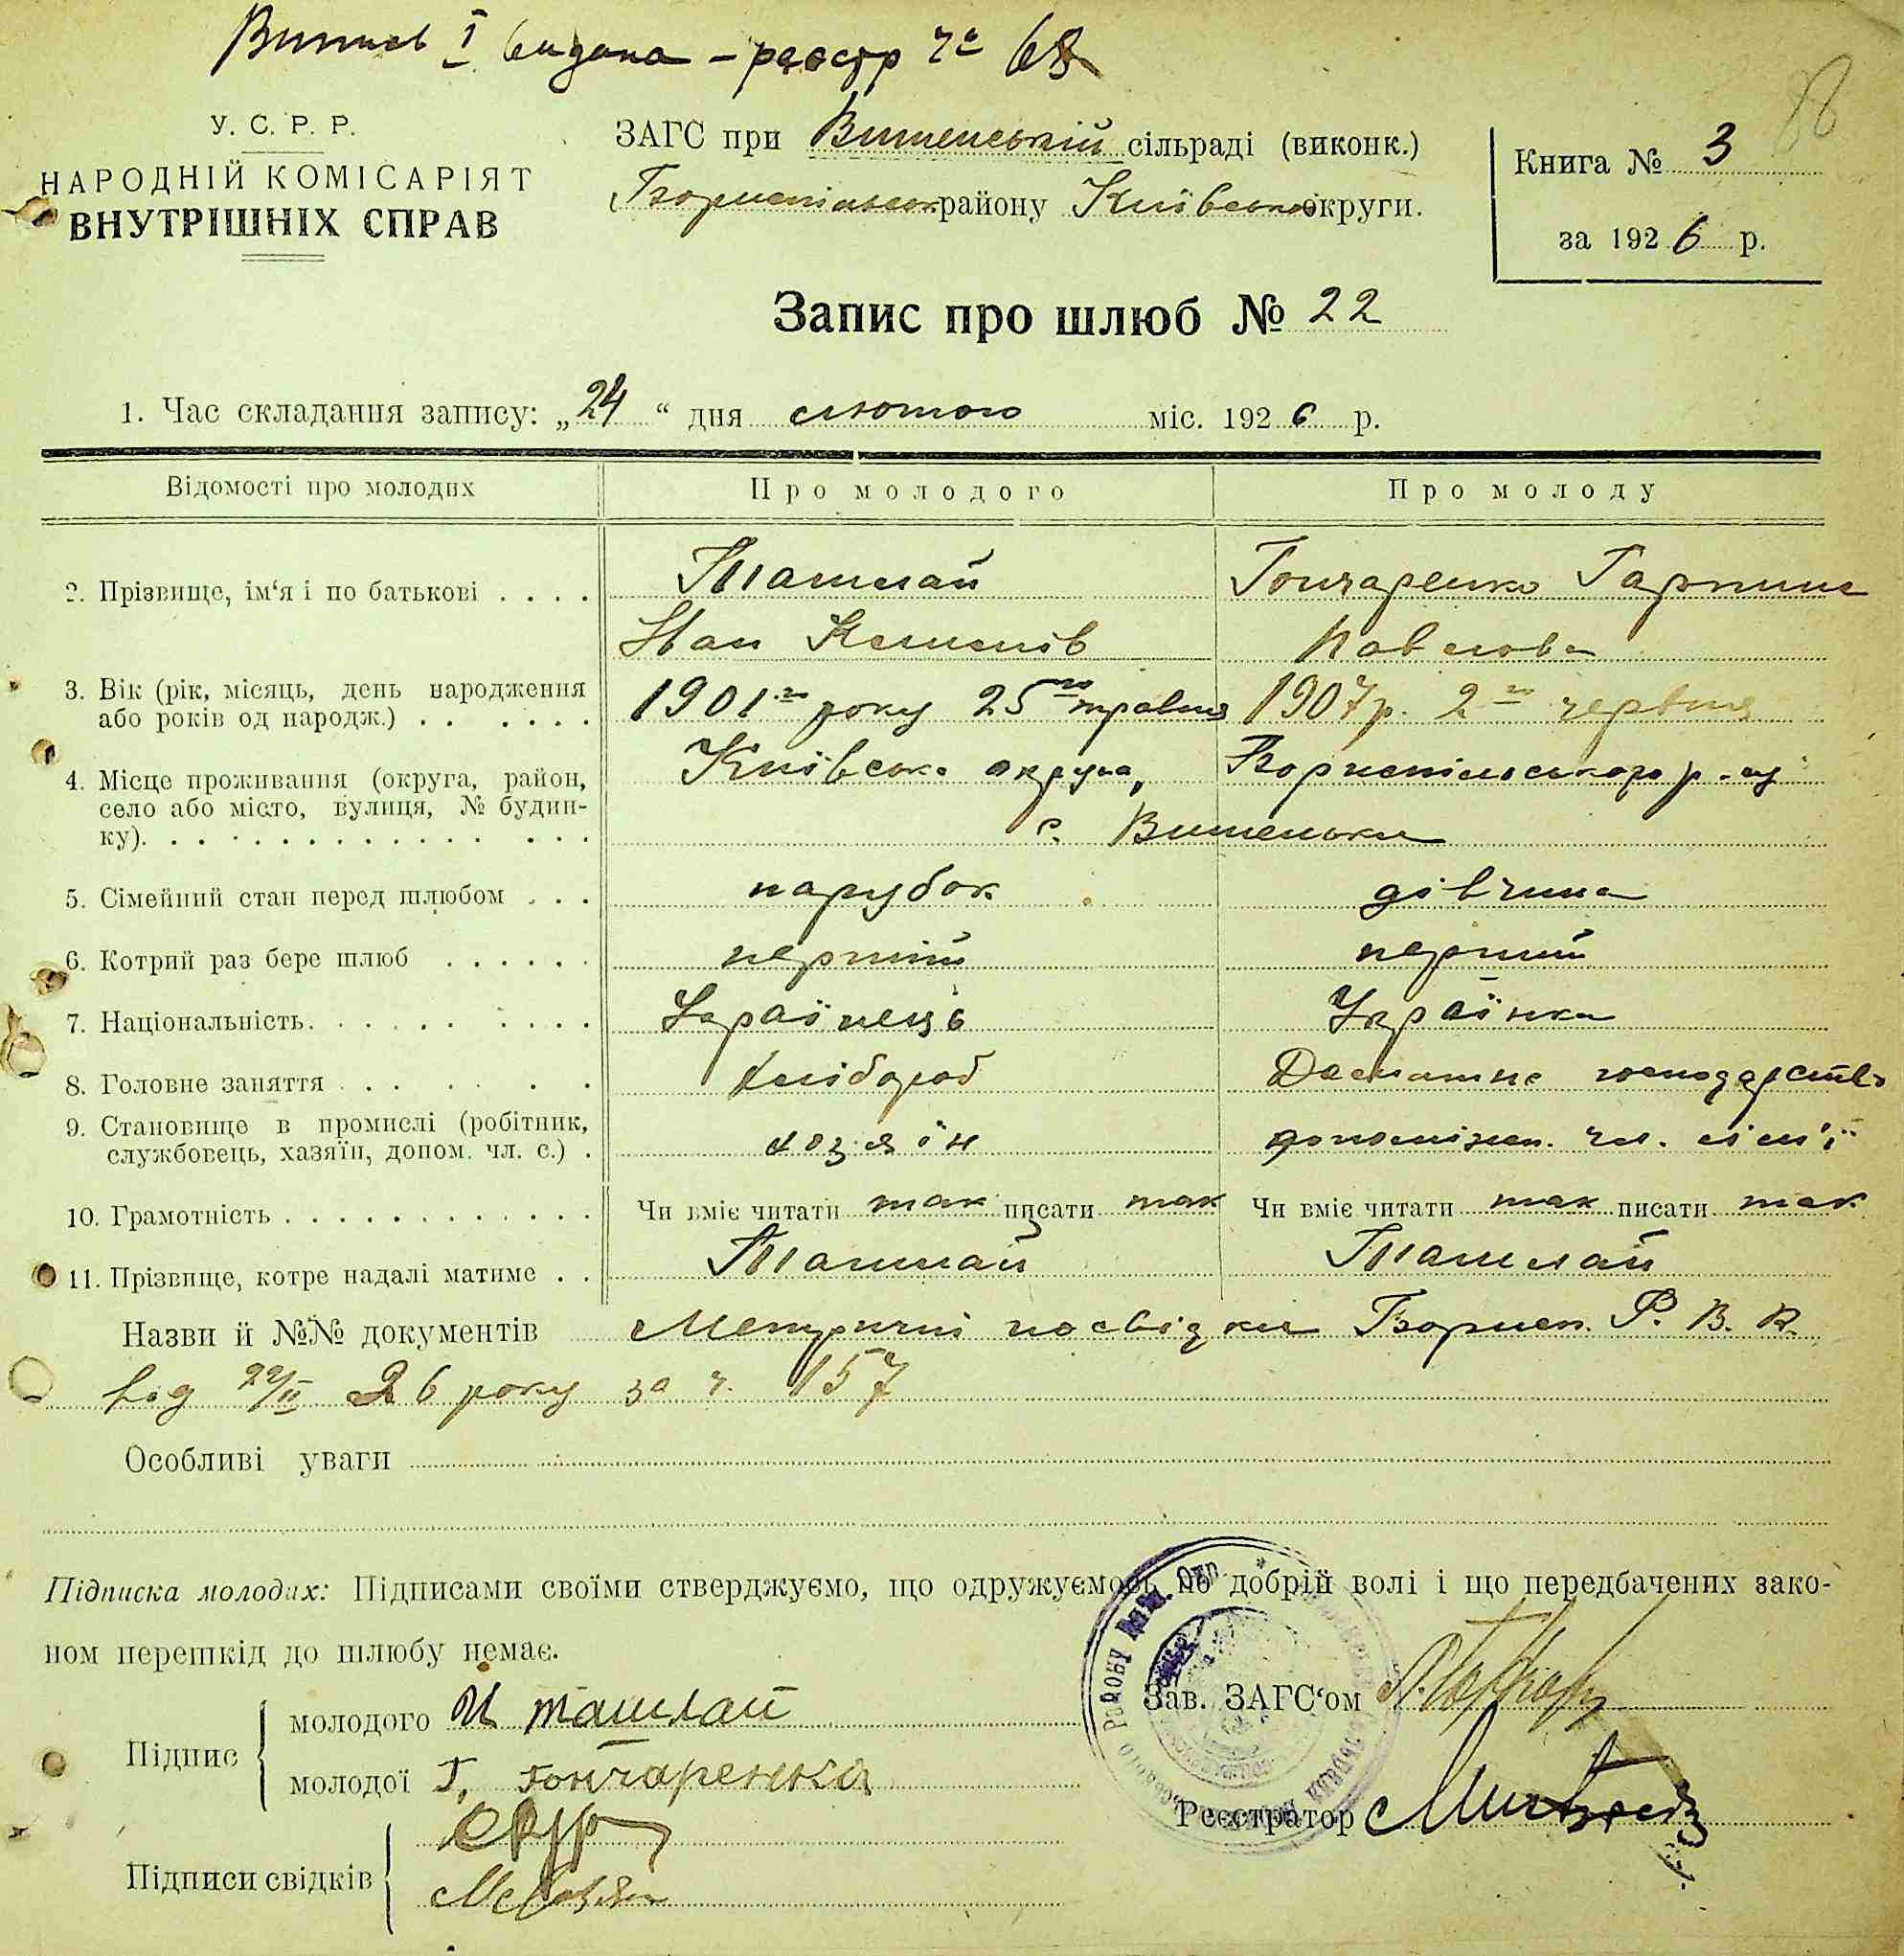 Випись І видана – реєстр ч. 68
У. С. Р. Р.
НАРОДНІЙ КОМІСАРІЯТ
ВНУТРІШНІХ СПРАВ
ЗАГС при Вишенській сільраді (виконк.)
Бориспільськ. району Київської округи.
Книга № 3
за 1926 р.
Запис про шлюб № 22
1. Час складання запису: „24“ дня лютого міс. 1926 р.
Відомості про молодих
Про молодого
Про молоду
2. Прізвище, ім‘я і по батькові
Ташлай
Іван
Гончаренко Гарпина
Павлова
3. Вік (рік, місяць, день народження
або років од народж.)
1901го року 25го травня
1907р. 2го червня
4. Місце проживання (округа, район,
село або місто, вулиця, № будин-
ку).
Київська округа, Бориспільського р-ну
с. Вишеньки
5. Сімейний стан перед шлюбом
парубок
дівчина
6. Котрий раз бере шлюб
перший
перший
7. Національність
Українець
Українка
8. Головне заняття
хлібороб
Домашнє господарство
9. Становище в промислі (робітник,
службовець, хазяїн, допом. чл. с.)
хозяїн
допоміжн. чл. сім'ї
10. Грамотність
Чи вміє читати так писати так
Чи вміє читати так писати так
11. Прізвище, котре надалі матиме
Ташлай
Ташлай
Назви й №№ документів Метричні посвідки Борисп. Р. В. К.
від 22/ІІ 26 року за ч. 157
Особливі уваги
Підписка молодих: Підписами своїми стверджуємо, що одружуємось по добрій волі і що передбачених зако-
ном перешкід до шлюбу немає.
Зав. ЗАГС‘ом
Підпис
молодого И Ташлай
молодої Г. Гончаренкова
Реєстратор
Підписи свідків